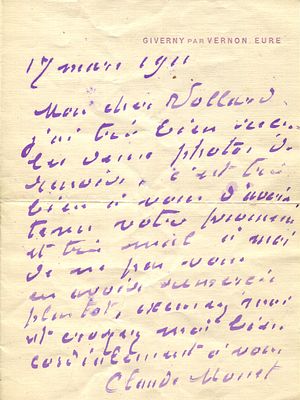 GIVERNY PAR VERNON. EURE
17 mars 1911
Mon cher Vollard
j'ai très bien reçu
les deux photos de
renoir, c'est très
bien à vous d'avoir
tenu votre promesse
et très mal à moi
de ne pas vous
en avoir remercié
plus tôt, excusez moi
et croyez moi bien
cordialement à vous
Claude Monet